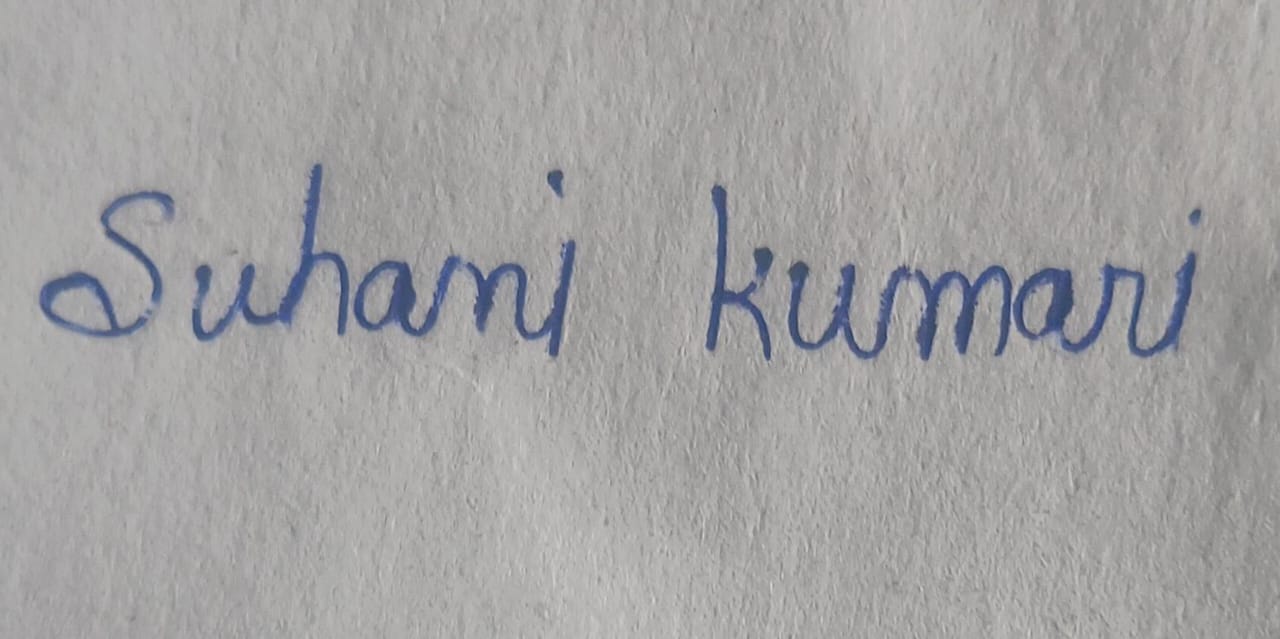 Suhani kumari